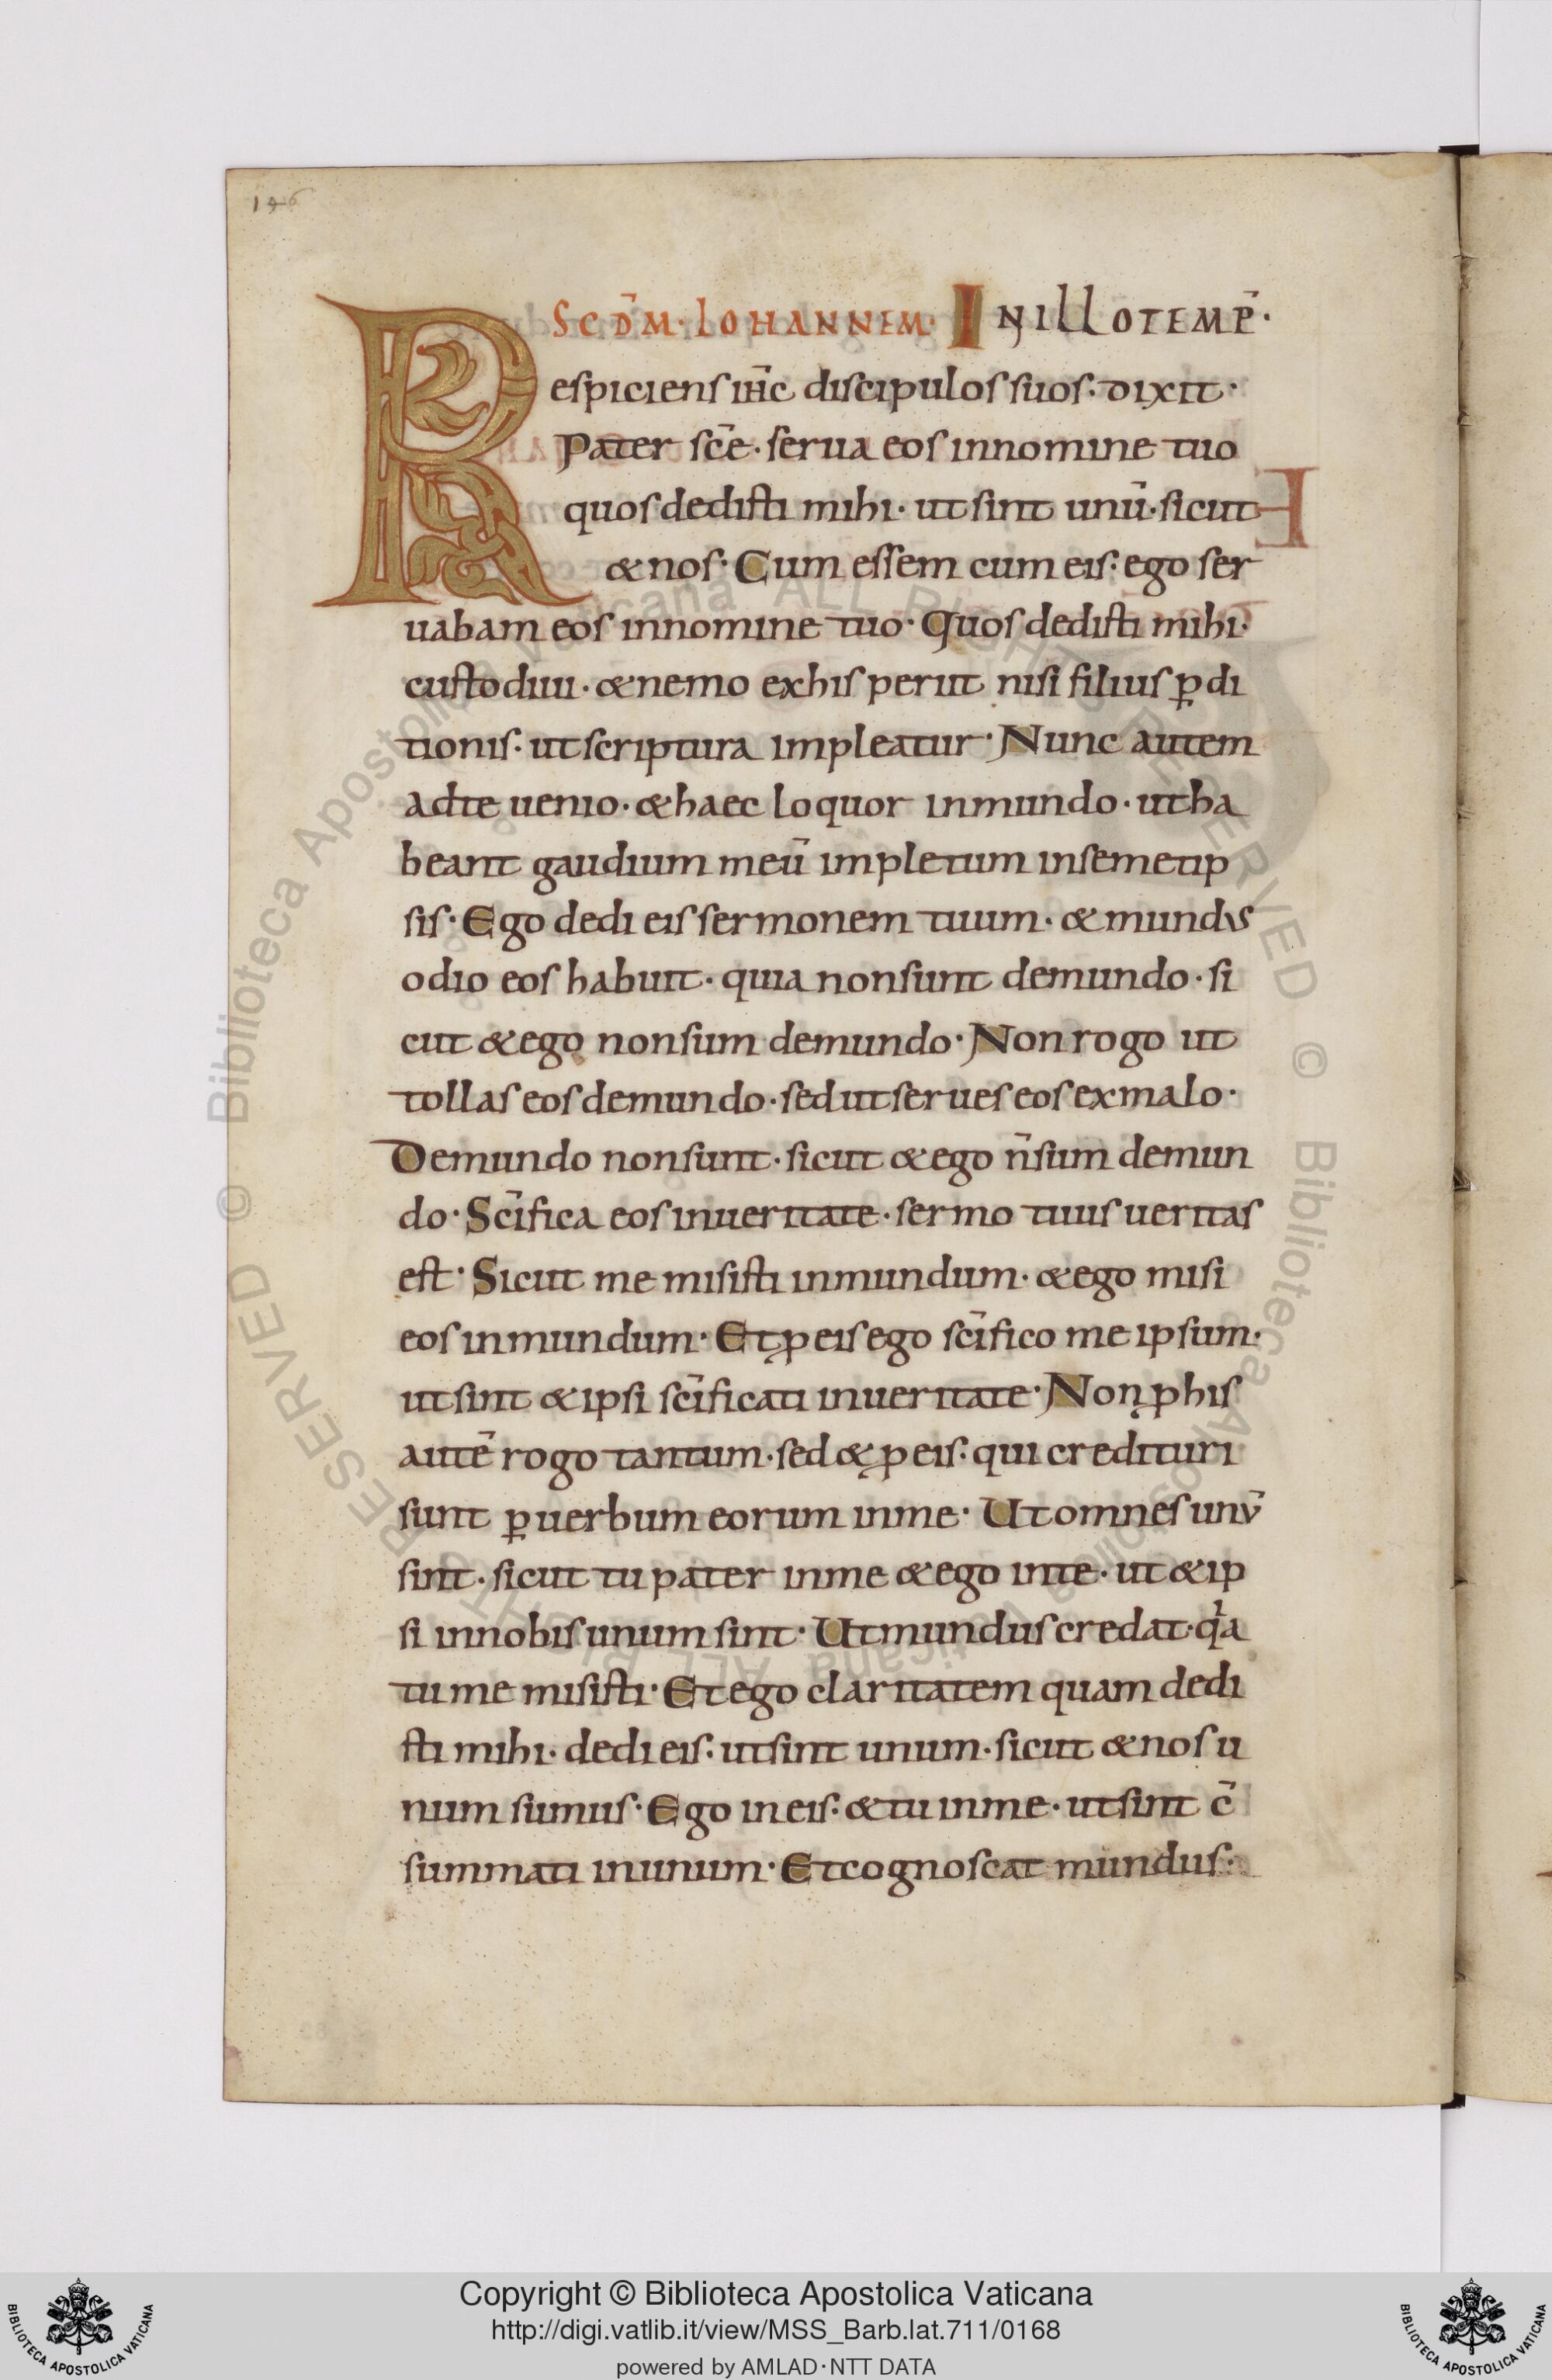 146
SCD̄M·IOHANNEM· IN ILLO TEMP̄·
Respiciens ih̄c discipulos suos· dixit·
Pater sc̄e· serua eos in nomine tuo
quos dedisti mihi· ut sint unū· sicut
& nos· Cum essem cum eis· ego ser
uabam eos in nomine tuo· Quos dedisti mihi·
custodiui· & nemo ex his periit nisi filius ꝑdi
tionis· ut scriptura impleatur· Nunc autem
ad te uenio· & haec loquor in mundo· ut ha
beant gaudium meū impletum in semetip
sis· Ego dedi eis sermonem tuum· & mundus
odio eos habuit· quia non sunt de mundo· si
cut & ego non sum de mundo· Non rogo ut
tollas eos de mundo· sed ut serues eos ex malo·
De mundo non sunt· sicut & ego n̄ sum de mun
do· Sc̄ifica eos in ueritate· sermo tuus ueritas
est· Sicut me misisti in mundum· & ego misi
eos in mundum· Et ꝓ eis ego sc̄ifico me ipsum·
ut sint & ipsi sc̄ificati in ueritate· Non ꝓ his
autē rogo tantum· sed & ꝓ eis· qui credituri
sunt ꝑ uerbum eorum in me· Ut omnes unū
sint· sicut tu pater in me & ego in te· ut & ip
si in nobis unum sint· Ut mundus credat· qia
tu me misisti· Et ego claritatem quam dedi
sti mihi· dedi eis· ut sint unum· sicut & nos u
num sumus· Ego in eis· & tu in me· ut sint c̄
summati in unum· Et cognoscat mundus·
© Biblioteca Apostolica Vaticana ALL RIGHTS RESERVED © Biblioteca Apostolica Vaticana ALL RIGHTS RESERVED
Copyright © Biblioteca Apostolica Vaticana
http://digi.vatlib.it/view/MSS_Barb.lat.711/0168
powered by AMLAD·NTT DATA
BIBLIOTECA APOSTOLICA VATICANA
BIBLIOTECA APOSTOLICA VATICANA